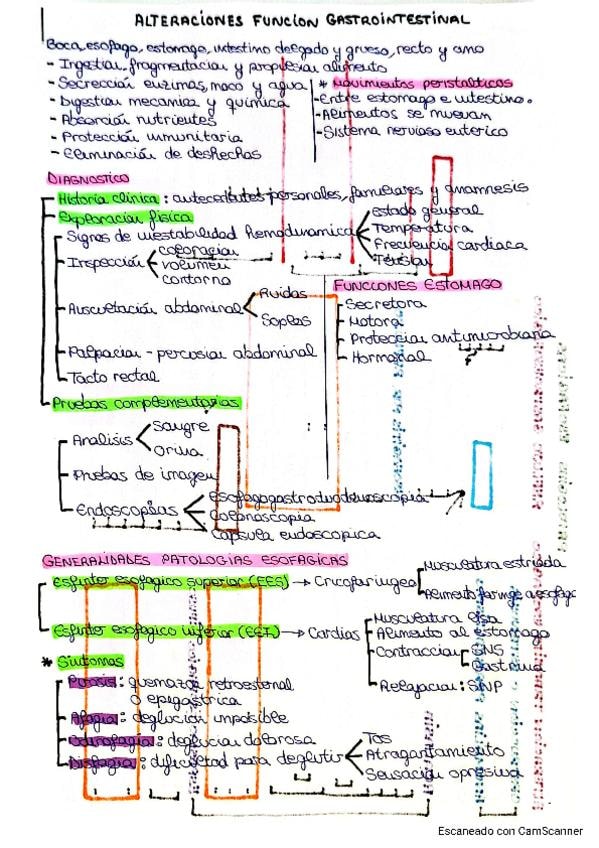 ALTERACIONES FUNCION GASTROINTESTINAL
Boca, esofago, estomago, intestino delgado y grueso, recto y ano
- Ingestion, fragmentacion y propulsion alimento
- Secreción enzimas, moco y agua
- Digestion mecanica y química
- Absorcion nutrientes
- Protección inmunitaria
- Eliminación de deshechos
* Movimientos peristalticos
- Entre estomago e intestino.
- Alimentos se muevan
- Sistema nervioso enterico
DIAGNOSTICO
Historia clinica : antecedentes personales, familiares y anamnesis
Exploracion fisica
Signos de inestabilidad hemodinamica
Estado general
Temperatura
Frecuencia cardiaca
Tension
Inspección
coloracion
volumen
contorno
Auscultación abdominal
Ruidos
Soplos
Palpacion - percusion abdominal
Tacto rectal
FUNCIONES ESTOMAGO
Secretora
Motora
Proteccion antimicrobiana
Hormonal
Pruebas complementarias
Analisis
Sangre
Orina
Pruebas de imagen
Endoscopias
Esofagogastroduodenoscopia
Colonoscopia
Capsula endoscopica
GENERALIDADES PATOLOGIAS ESOFAGICAS
Esfinter esofagico superior (EES) → Cricofaringeo
Musculatura estriada
Alimento faringe a esofago
Esfinter esofagico inferior (EEI) → Cardias
Musculatura lisa
Alimento al estomago
Contraccion
SNS
Gastrina
Relajacion : SNP
* Sintomas
Pirosis : quemazon retroesternal
o epigastrica
Afagia : deglución imposible
Odinofagia : deglucion dolorosa
Disfagia : dificultad para deglutir
Tos
Atragantamiento
Sensacion opresiva
Escaneado con CamScanner